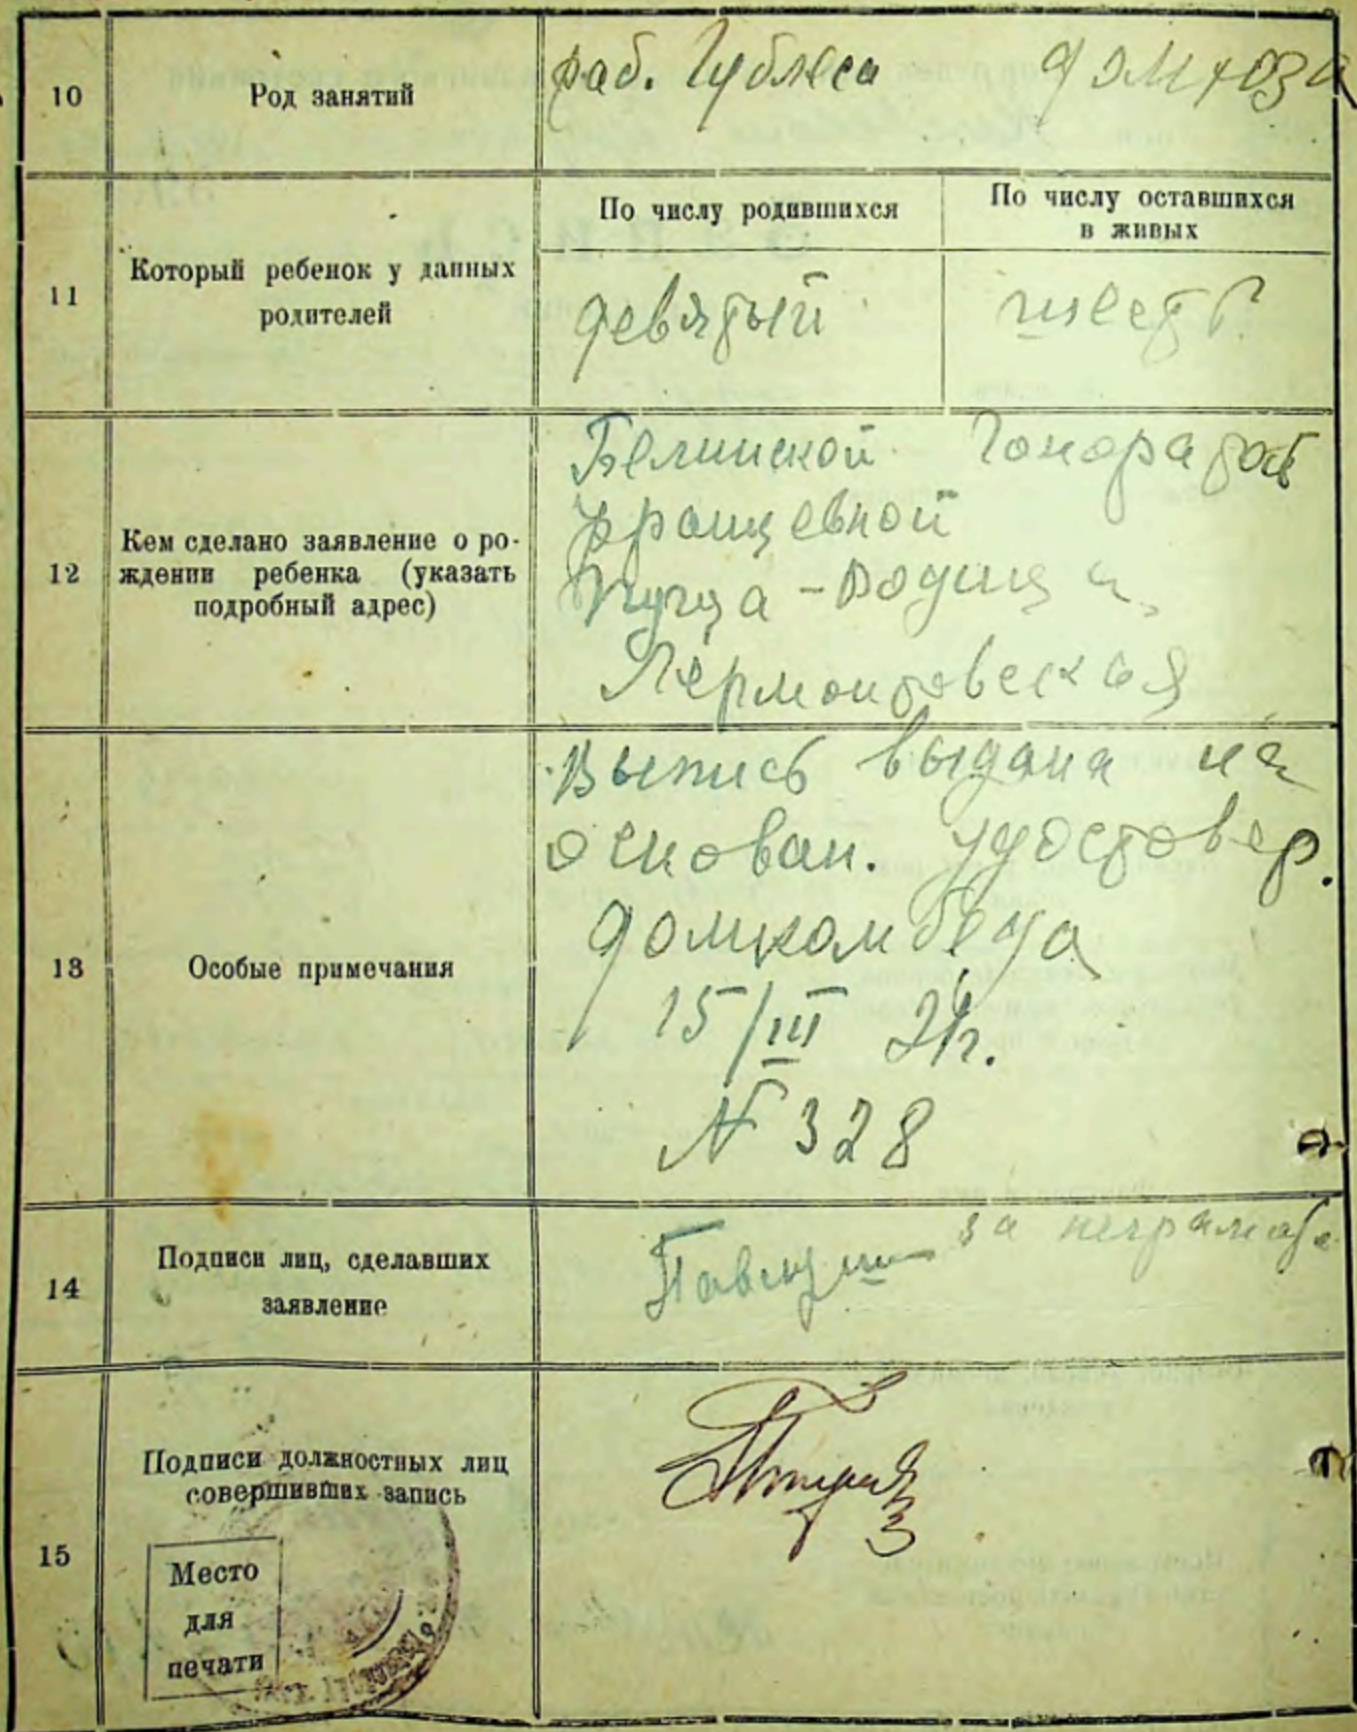 10
Род занятий
раб. Гублеса
11
Который ребенок у данных
родителей
По числу родившихся
По числу оставшихся
в живых
девятый
шесть
12
Кем сделано заявление о ро-
ждении ребенка (указать
подробный адрес)
Белинской Гоноратой
Францевной
Пуща-Водица
Лермонтовская
13
Особые примечания
Выпись выдана на
основан. удостовер.
домкомбеда
15/III 21г.
№ 328
14
Подписи лиц, сделавших
заявление
за неграмотн.
15
Подписи должностных лиц
совершивших запись
Место
для
печати